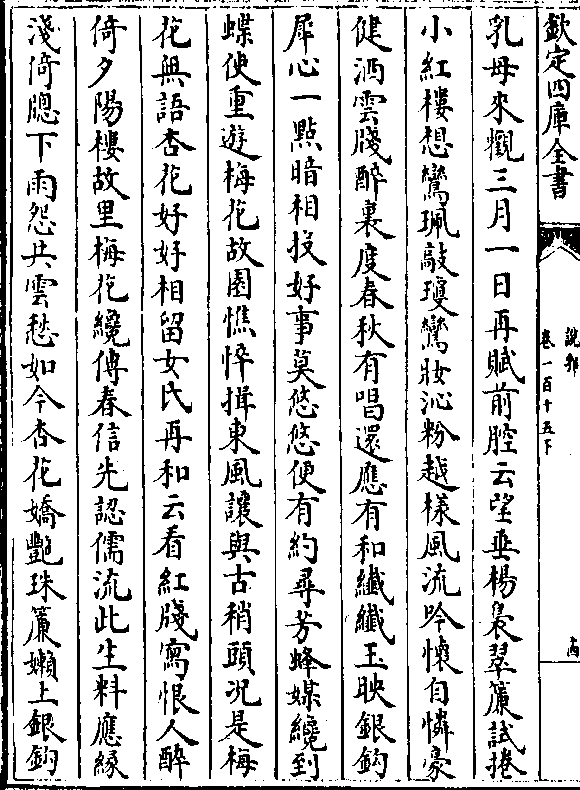 欽定四庫全書
說郛
卷一百十五下
乳母來觀三月一日再賦前腔云望垂楊裊翠簾試捲
小紅樓想鸞珮敲瓊鸞妝沁粉越樣風流吟懷自憐豪
健洒雲牋醉裏度春秋有唱還應有和纖纖玉映銀鈎
犀心一點暗相投好事莫悠悠便有約尋芳蜂媒纔到
蝶使重遊梅花故園憔悴揖東風讓與古稍頭况是梅
花無語杏花好好相留女氏再和云看紅牋寫恨人醉
倚夕陽樓故里梅花纔傳春信先認儒流此生料應緣
淺倚牎下雨怨共雲愁如今杏花嬌艷珠簾嬾上銀鈎